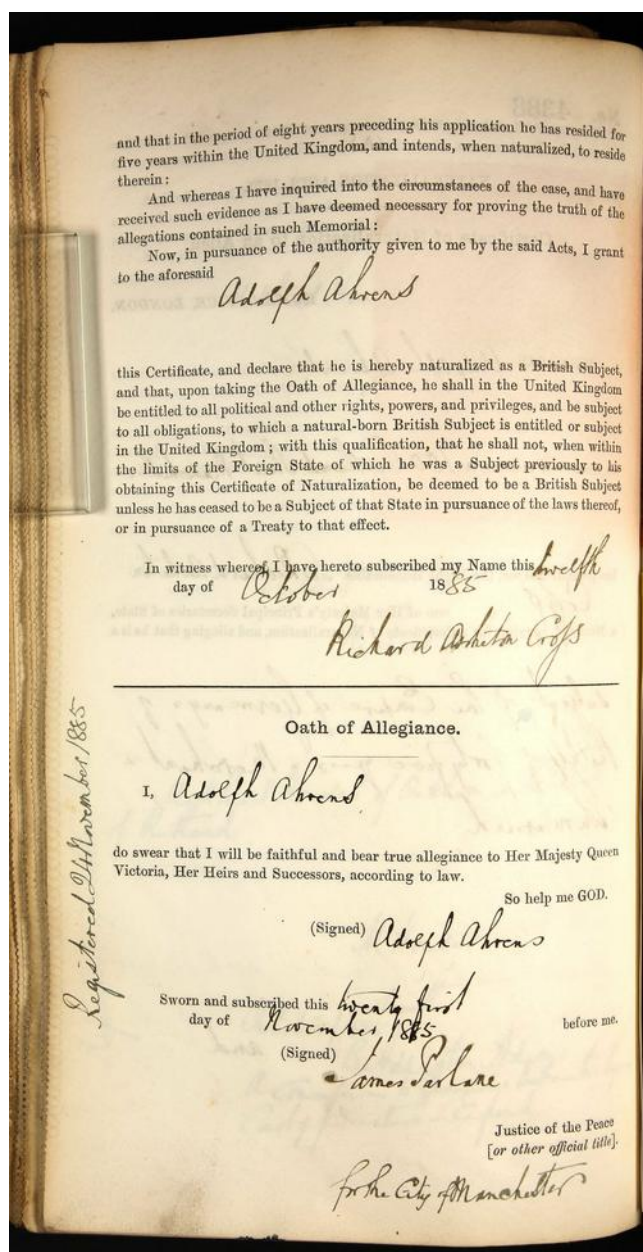 and that in the period of eight years preceding his application he has resided for
five years within the United Kingdom, and intends, when naturalized, to reside
therein:
And whereas I have inquired into the circumstances of the case, and have
received such evidence as I have deemed necessary for proving the truth of the
allegations contained in such Memorial:
Now, in pursuance of the authority given to me by the said Acts, I grant
to the aforesaid
Adolph Ahrens
this Certificate, and declare that he is hereby naturalized as a British Subject,
and that, upon taking the Oath of Allegiance, he shall in the United Kingdom
be entitled to all political and other rights, powers, and privileges, and be subject
to all obligations, to which a natural-born British Subject is entitled or subject
in the United Kingdom; with this qualification, that he shall not, when within
the limits of the Foreign State of which he was a Subject previously to his
obtaining this Certificate of Naturalization, be deemed to be a British Subject
unless he has ceased to be a Subject of that State in pursuance of the laws thereof,
or in pursuance of a Treaty to that effect.
In witness whereof I have hereto subscribed my Name this twelfth
day of October 1885
Richard Assheton Cross
Oath of Allegiance.
I, Adolph Ahrens
do swear that I will be faithful and bear true allegiance to Her Majesty Queen
Victoria, Her Heirs and Successors, according to law.
So help me GOD.
(Signed) Adolph Ahrens
Sworn and subscribed this twenty first
day of November, 1885 before me.
(Signed)
James Parlane
Justice of the Peace
[or other official title].
for the City of Manchester
Registered 24 November 1885